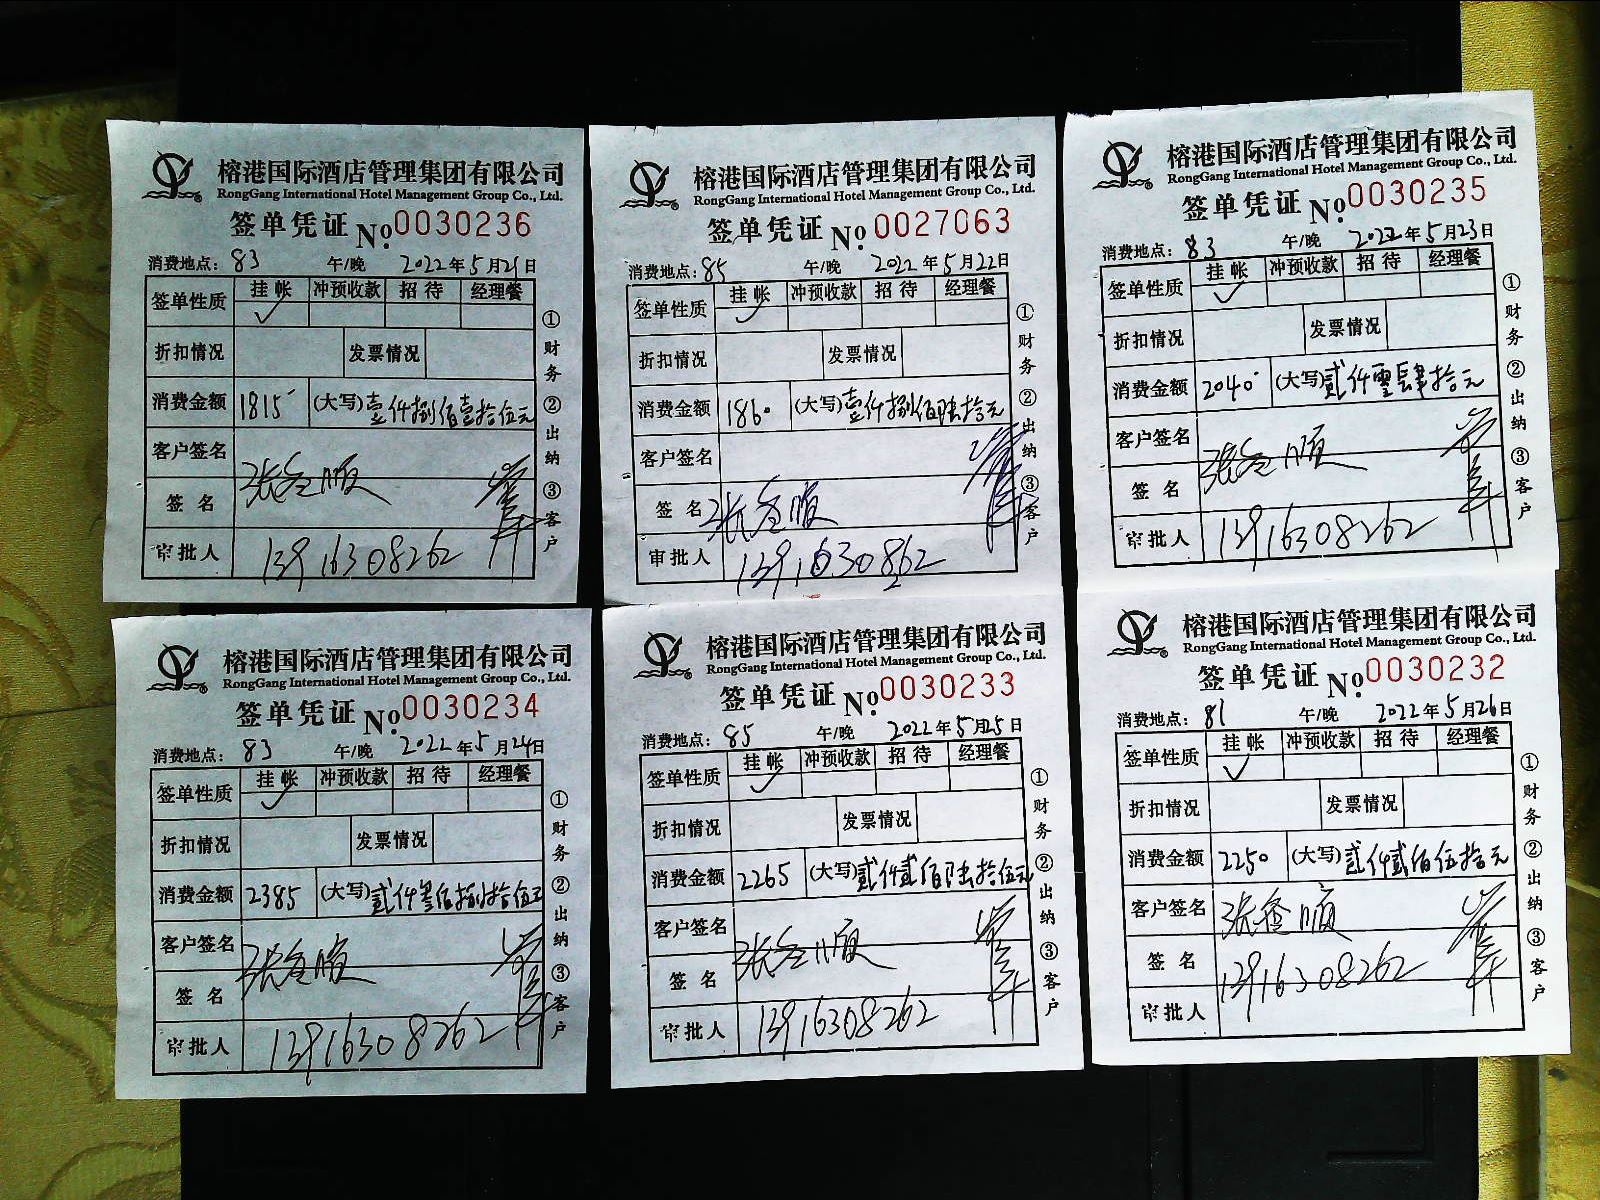 榕港国际酒店管理集团有限公司
RongGang International Hotel Management Group Co., Ltd.
签单凭证 No.0030236
消费地点: 83 午/晚 2022年5月21日
签单性质 挂帐 冲预收款 招待 经理餐
✓
折扣情况 发票情况
消费金额 1815 (大写) 壹仟捌佰壹拾伍元
客户签名
签名
审批人 13916308262
①财务 ②出纳 ③客户
榕港国际酒店管理集团有限公司
RongGang International Hotel Management Group Co., Ltd.
签单凭证 No.0027063
消费地点: 85 午/晚 2022年5月22日
签单性质 挂帐 冲预收款 招待 经理餐
✓
折扣情况 发票情况
消费金额 1860 (大写) 壹仟捌佰陆拾元
客户签名
签名
审批人
①财务 ②出纳 ③客户
榕港国际酒店管理集团有限公司
RongGang International Hotel Management Group Co., Ltd.
签单凭证 No.0030235
消费地点: 83 午/晚 2022年5月23日
签单性质 挂帐 冲预收款 招待 经理餐
✓
折扣情况 发票情况
消费金额 2040 (大写) 贰仟零肆拾元
客户签名
签名
审批人 13916308262
①财务 ②出纳 ③客户
榕港国际酒店管理集团有限公司
RongGang International Hotel Management Group Co., Ltd.
签单凭证 No.0030234
消费地点: 83 午/晚 2022年5月24日
签单性质 挂帐 冲预收款 招待 经理餐
✓
折扣情况 发票情况
消费金额 2385 (大写) 贰仟叁佰捌拾伍元
客户签名
签名
审批人 13916308262
①财务 ②出纳 ③客户
榕港国际酒店管理集团有限公司
RongGang International Hotel Management Group Co., Ltd.
签单凭证 No.0030233
消费地点: 85 午/晚 2022年5月25日
签单性质 挂帐 冲预收款 招待 经理餐
✓
折扣情况 发票情况
消费金额 2265 (大写) 贰仟贰佰陆拾伍元
客户签名
签名
审批人 13916308262
①财务 ②出纳 ③客户
榕港国际酒店管理集团有限公司
RongGang International Hotel Management Group Co., Ltd.
签单凭证 No.0030232
消费地点: 81 午/晚 2022年5月26日
签单性质 挂帐 冲预收款 招待 经理餐
✓
折扣情况 发票情况
消费金额 2250 (大写) 贰仟贰佰伍拾元
客户签名
签名 13916308262
审批人
①财务 ②出纳 ③客户